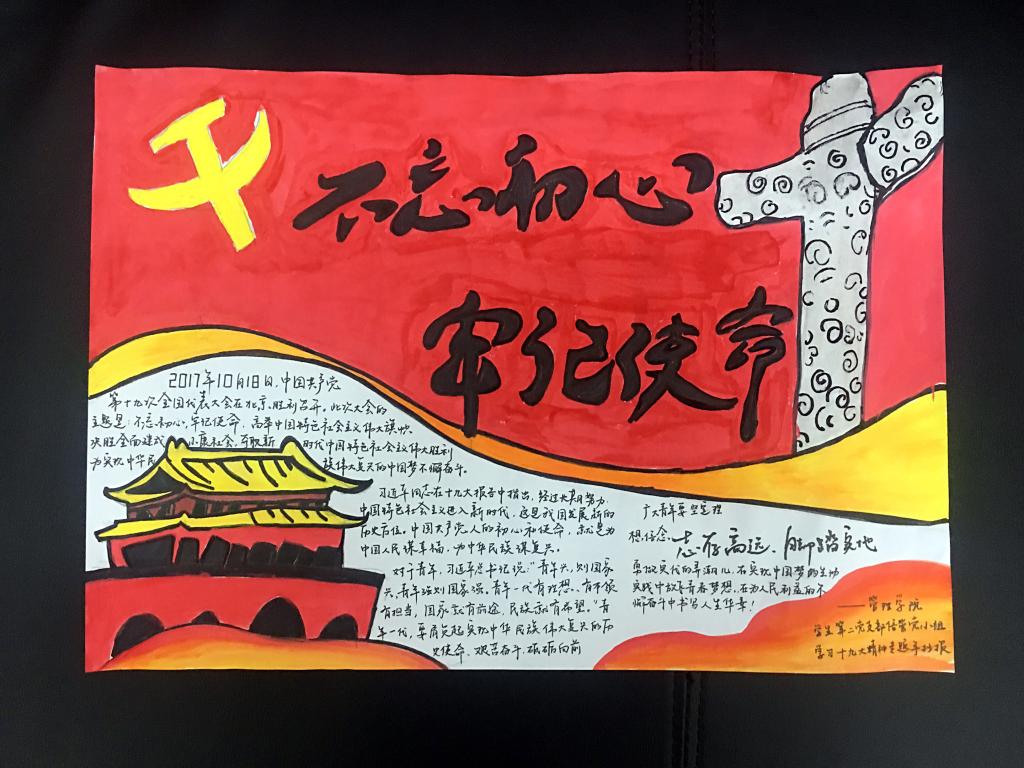 不忘初心
牢记使命
2017年10月18日，中国共产党
第十九次全国代表大会在北京胜利召开。此次大会的
主题是：不忘初心，牢记使命，高举中国特色社会主义伟大旗帜，
决胜全面建成小康社会，夺取新时代中国特色社会主义伟大胜利
为实现中华民族伟大复兴的中国梦不懈奋斗。
习近平同志在十九大报告中指出，经过长期努力，
中国特色社会主义进入新时代，这是我国发展新的
历史方位。中国共产党人的初心和使命，就是为
中国人民谋幸福，为中华民族谋复兴。
对于青年，习近平总书记说："青年兴，则国家
兴，青年强则国家强。青年一代有理想、有本领
有担当，国家就有前途，民族就有希望。"青
年一代，要肩负起实现中华民族伟大复兴的历
史使命，艰苦奋斗，砥砺向前
广大青年要坚定理
想信念，志存高远，脚踏实地
勇做时代的弄潮儿，在实现中国梦的生动
实践中放飞青春梦想，在为人民利益的不
懈奋斗中书写人生华章！
——管理学院
学生第二党支部信管党小组
学习十九大精神主题手抄报